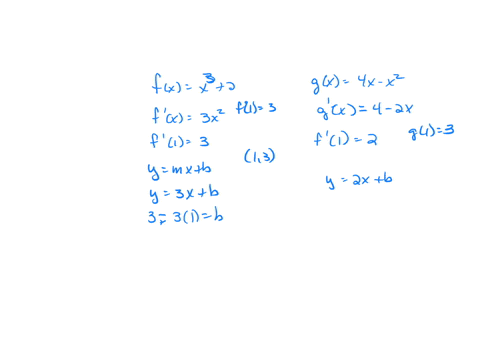 f(x) = x³+2
f'(x) = 3x² f(1) = 3
f'(1) = 3
y = mx+b (1,3)
y = 3x+b
3 = 3(1) = b
g(x) = 4x - x²
g'(x) = 4 - 2x
f'(1) = 2 g(1) = 3
y = 2x+b